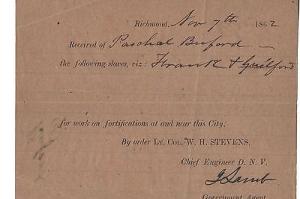 Richmond, Nov 7th 1862
Received of Paschal Buford
the following slaves, viz: Frank & Guilford
for work on fortifications at and near this City,
By order Lt. Col. W. H. STEVENS,
Chief Engineer D. N. V.
J Lamb
Government Agent.